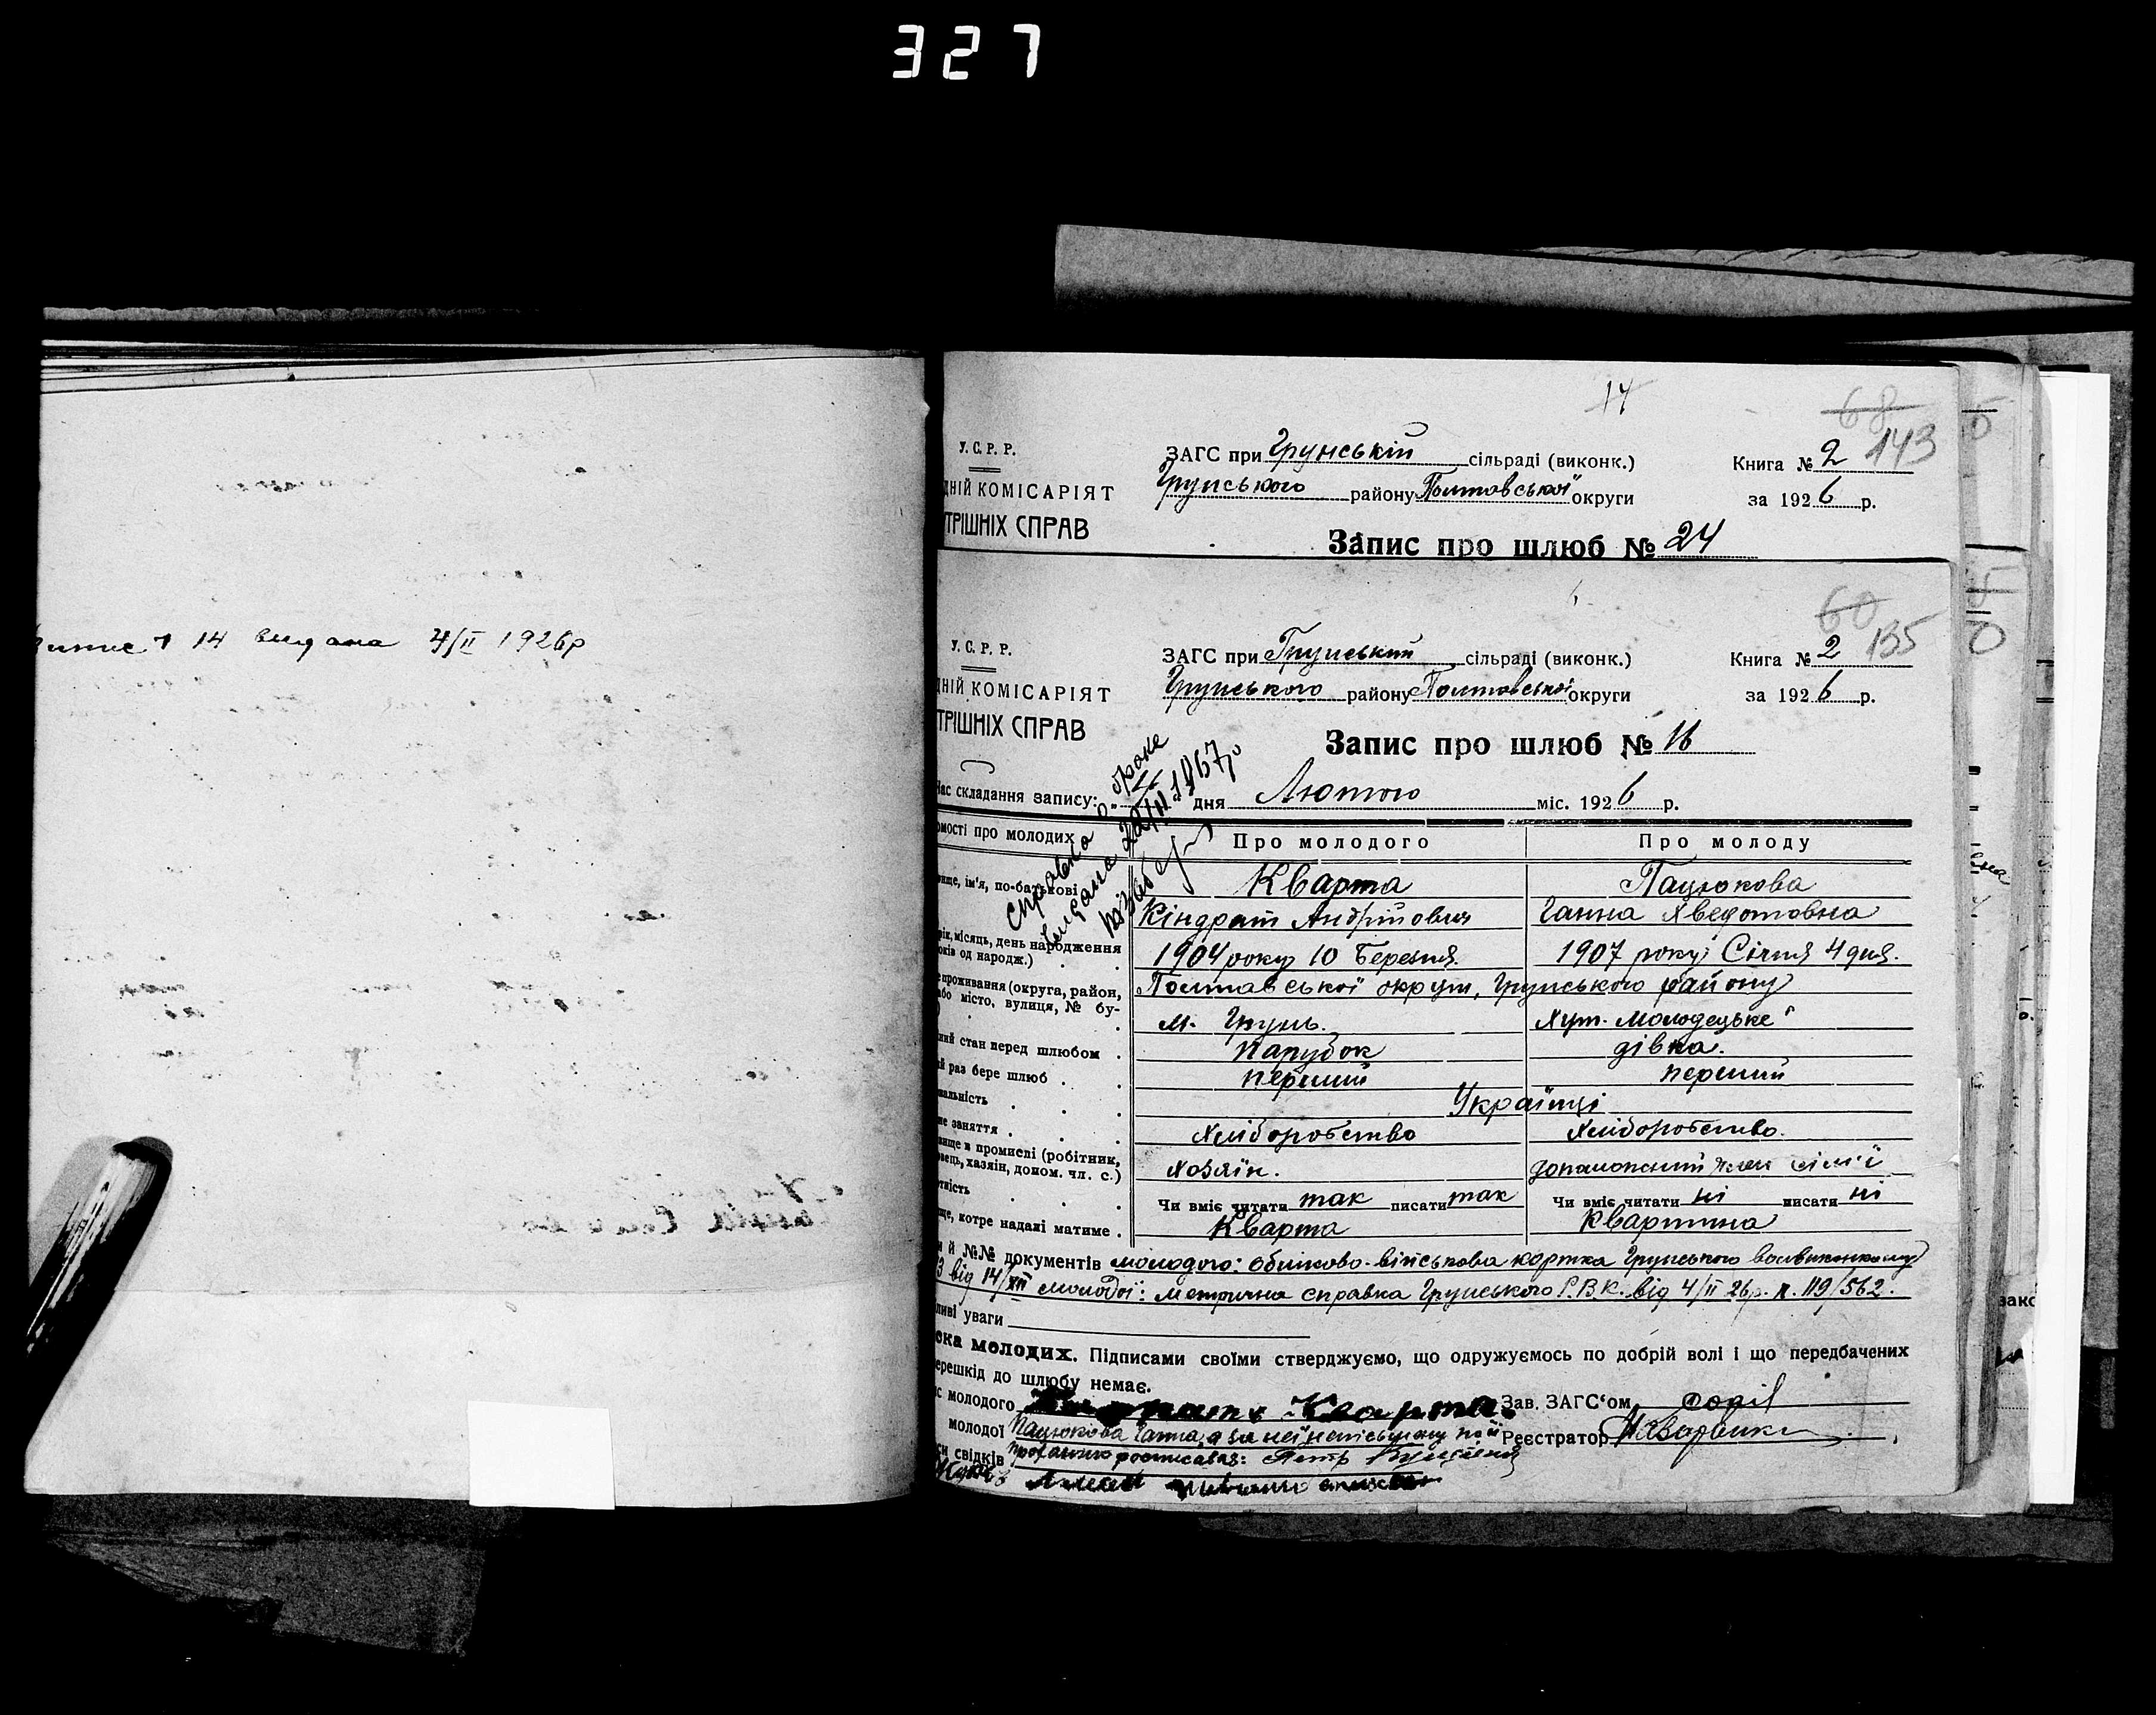 327
14 видана 4/II 1926р
14
68
143
У.С.Р.Р.
ДНІЙ КОМІСАРІЯТ
ТРІШНІХ СПРАВ
ЗАГС при Грунській сільраді (виконк.)
Грунського району Полтавської округи
Книга № 2
за 1926 р.
Запис про шлюб № 24
60
135
У.С.Р.Р.
ДНІЙ КОМІСАРІЯТ
ТРІШНІХ СПРАВ
ЗАГС при Грунський сільраді (виконк.)
Грунського району Полтавської округи
Книга № 2
за 1926 р.
Запис про шлюб № 16
Час складання запису: дня Лютого міс. 1926 р.
Справка о браке
видана
омості про молодих Про молодого Про молоду
вище, ім'я, по-батькові Кварта Пацюкова
Кіндрат Андрійович Ганна Хведотовна
рік, місяць, день народження
років од народж.) 1904 року 10 Березня. 1907 року Січня 4 дня.
проживання (округа, район,
або місто, вулиця, № бу- Полтавської округи, Грунського району
м. Грунь. Хут. Молодецьке
ний стан перед шлюбом парубок дівка.
й раз бере шлюб перший перший
нальність Українці
не заняття Хліборобство Хліборобство.
вище в промислі (робітник,
вець, хазяін, допом. чл. с.) Хозяїн. допоможний член сім'ї
тність Чи вміє читати так писати так Чи вміє читати ні писати ні
ще, котре надалі матиме Кварта Квартина
й №№ документів молодого: обліково-військова картка Грунського волвиконкому
3 від 14/XII молодої: метрична справка Грунського Р.В.К. від 4/II 26р. н. 119/562.
ливі уваги
ска молодих. Підписами своїми стверджуємо, що одружуємось по добрій волі і що передбачених
ерешкід до шлюбу немає.
с молодого Кварта Зав. ЗАГС'ом
молодої Пацюкова Ганна, а за неї неписьмену по її Реєстратор
си свідків проханню росписався: Петь
Алексей